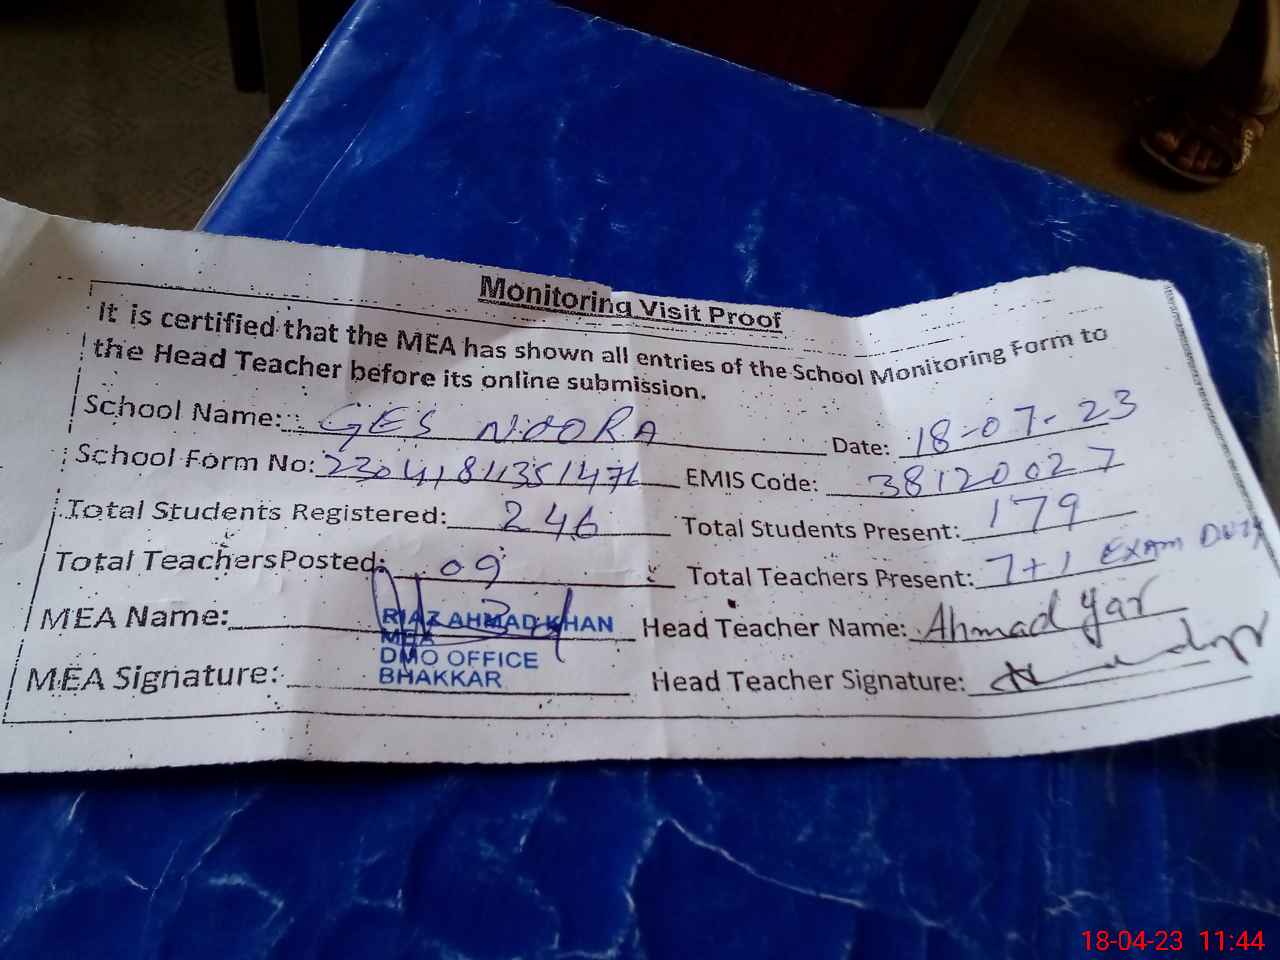 Monitoring Visit Proof
It is certified that the MEA has shown all entries of the School Monitoring Form to
the Head Teacher before its online submission.
School Name: GES NOORA Date: 18-07-23
School Form No: EMIS Code: 38120027
Total Students Registered: 246 Total Students Present: 179
Total Teachers Posted: 09 Total Teachers Present: 7+1 EXAM DUTY
MEA Name: RIAZ AHMAD KHAN Head Teacher Name: Ahmad Yar
MEA
DMO OFFICE
MEA Signature: BHAKKAR Head Teacher Signature:
18-04-23 11:44